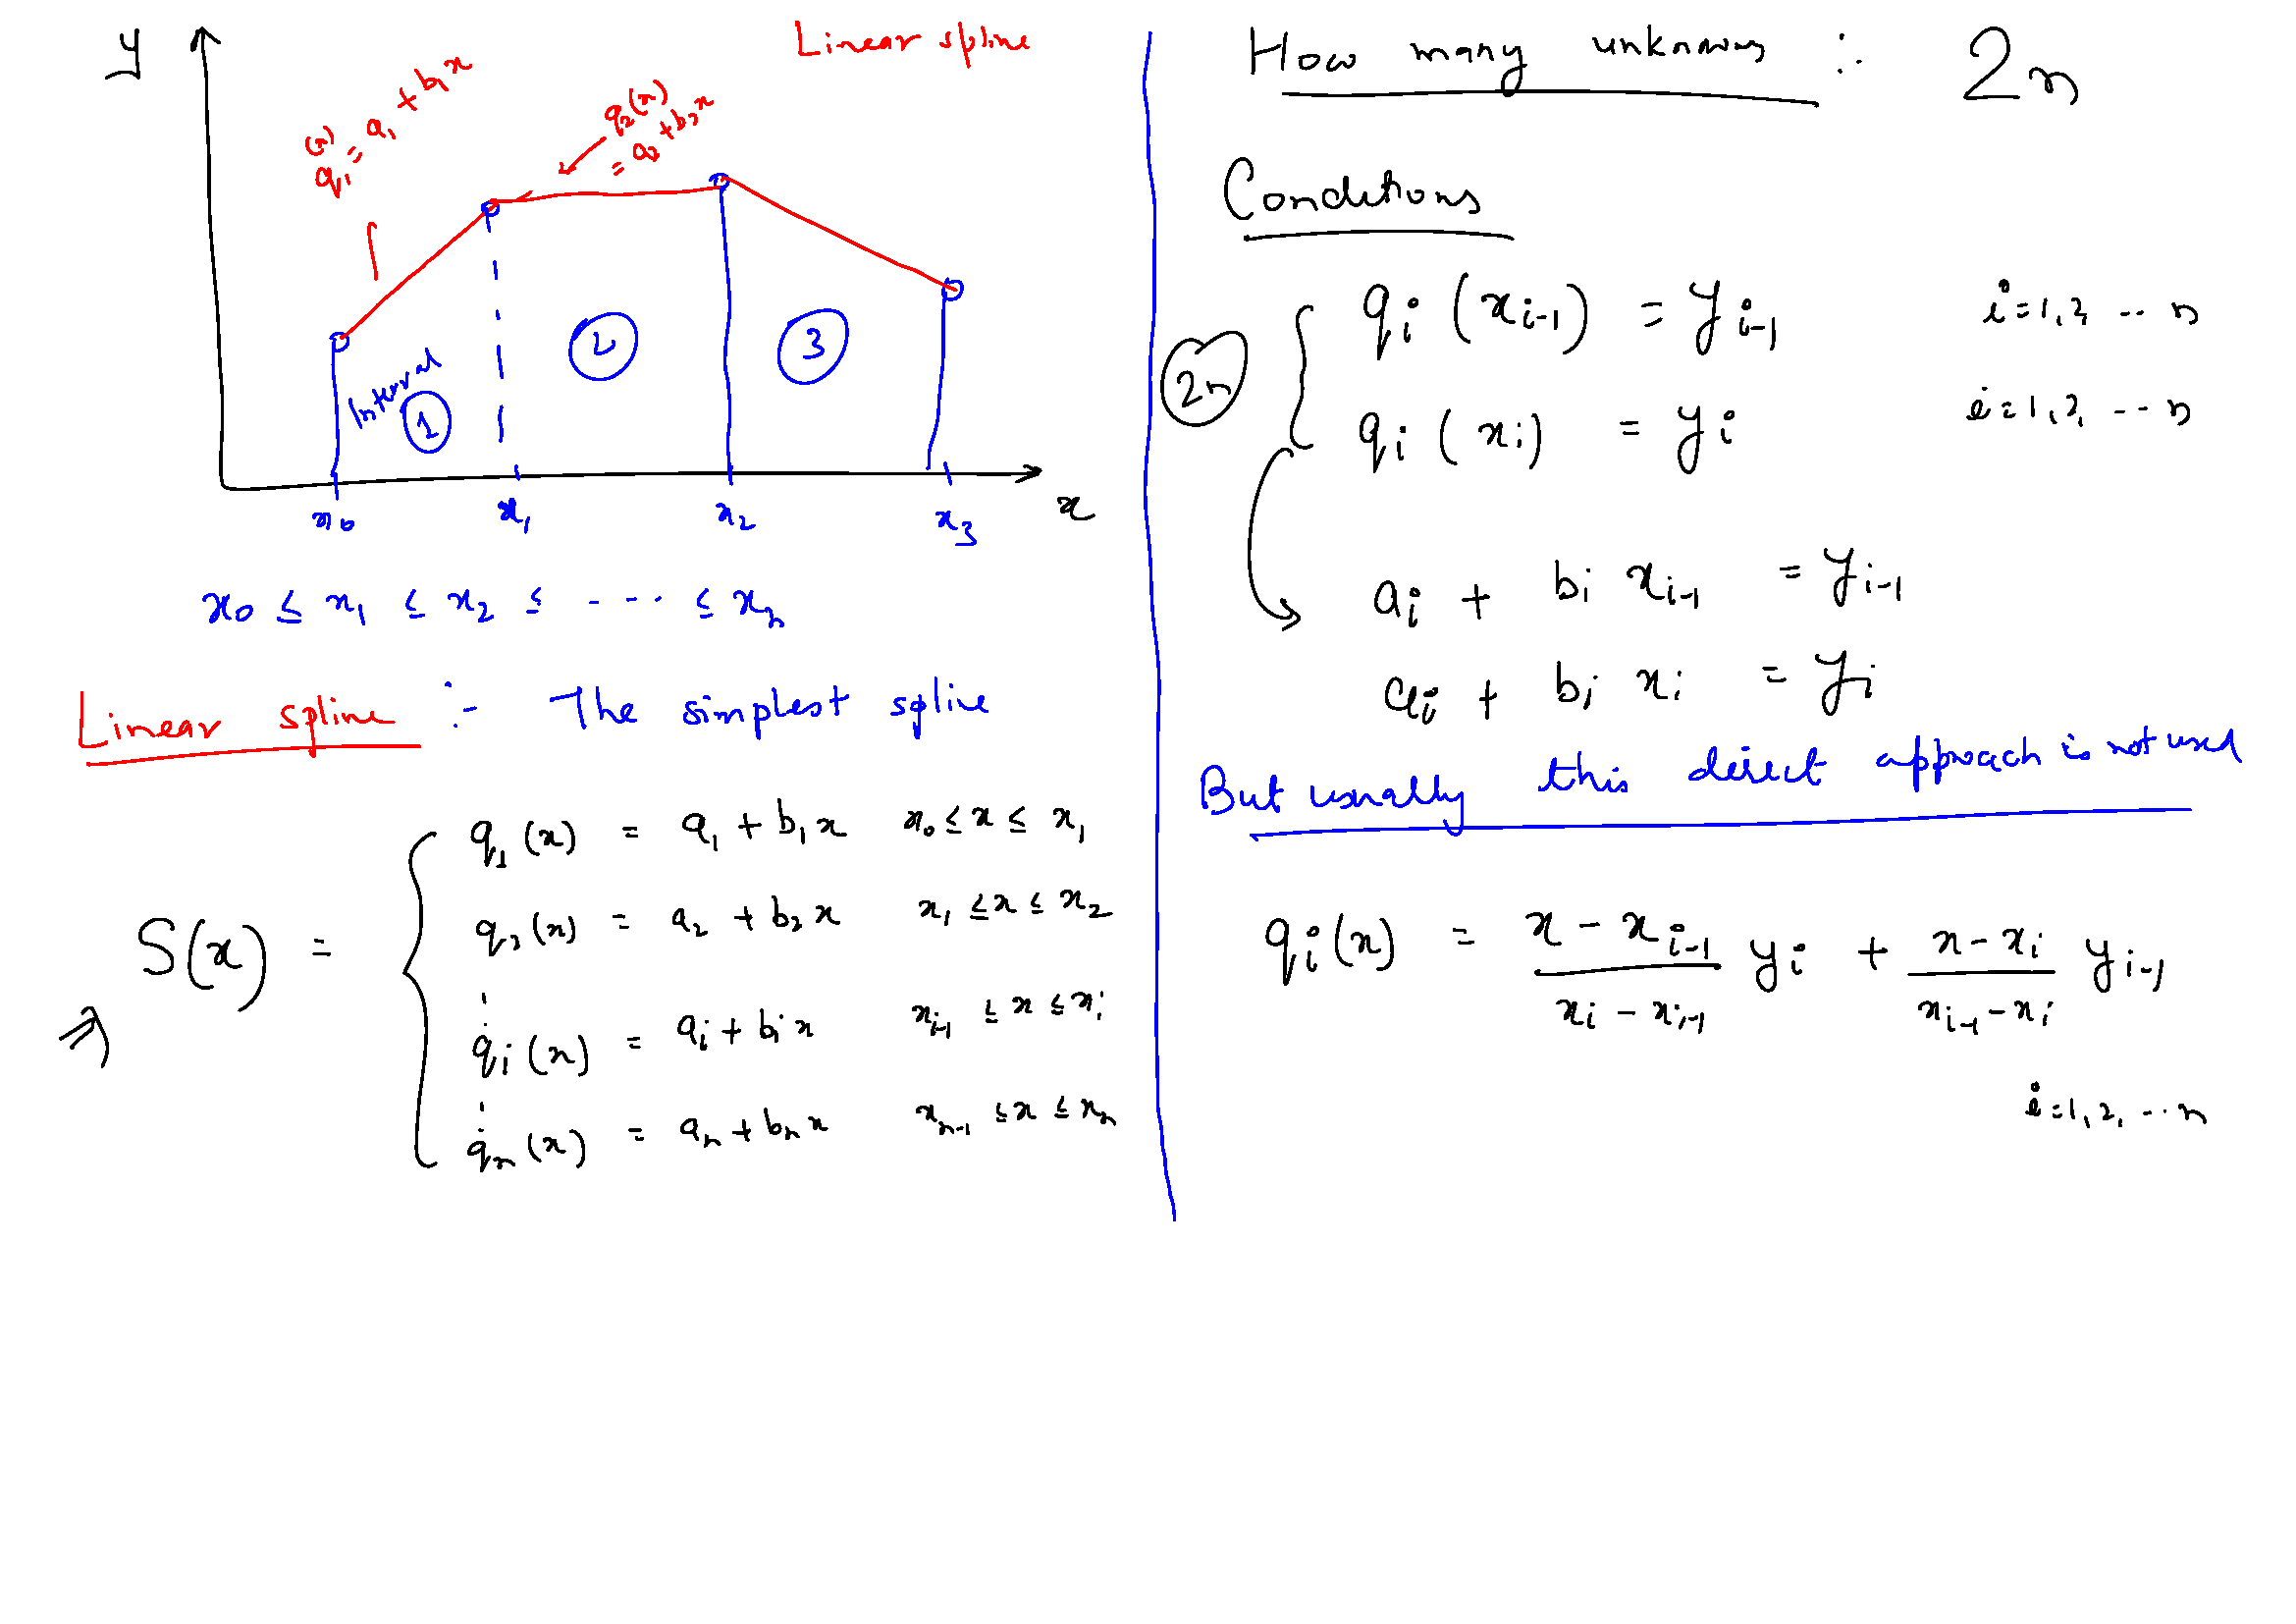 y
Linear spline
q₁(x) = a₁ + b₁x
q₂(x)
= a₂ + b₂x
Interval
1
2
3
x₀ x₁ x₂ x₃ x
x₀ ≤ x₁ ≤ x₂ ≤ - - - - ≤ xₙ
Linear spline :- The simplest spline
q₁(x) = a₁ + b₁x x₀ ≤ x ≤ x₁
q₂(x) = a₂ + b₂x x₁ ≤ x ≤ x₂
⇒ S(x) =
⋮
qᵢ(x) = aᵢ + bᵢx xᵢ₋₁ ≤ x ≤ xᵢ
⋮
qₙ(x) = aₙ + bₙx xₙ₋₁ ≤ x ≤ xₙ
How many unknowns :- 2n
Conditions
2n
qᵢ(xᵢ₋₁) = yᵢ₋₁ i=1,2, -- n
qᵢ(xᵢ) = yᵢ i=1,2, --- n
aᵢ + bᵢ xᵢ₋₁ = yᵢ₋₁
aᵢ + bᵢ xᵢ = yᵢ
But usually this direct approach is not used
qᵢ(x) = (x - xᵢ₋₁)/(xᵢ - xᵢ₋₁) yᵢ + (x - xᵢ)/(xᵢ₋₁ - xᵢ) yᵢ₋₁
i=1,2, --- n